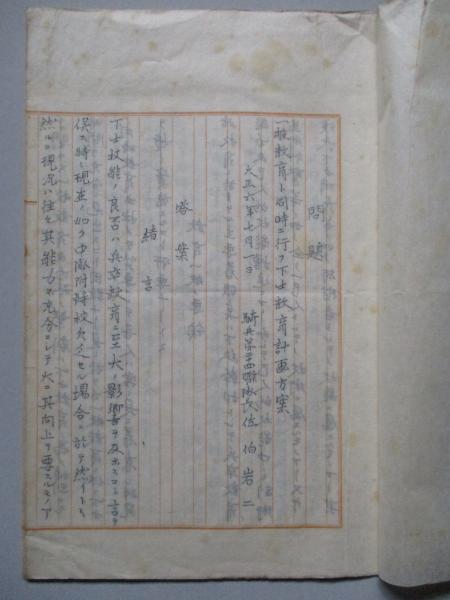 問題
一般教育ト同時ニ行フ下士教育計画方案
大正六年七月一日
騎兵第 聯隊 佐伯岩二
答案
緒言
下士技能ノ良否ハ兵卒教育ニ至大ノ影響ヲ及ホスコト言ヲ
俟タ 時 現在ノ如ク中隊附将校欠乏セル場合ニ於テ然リトス
然ルニ現況ハ往々其能力 充分ニシテ大ニ其向上ヲ要スルモノア